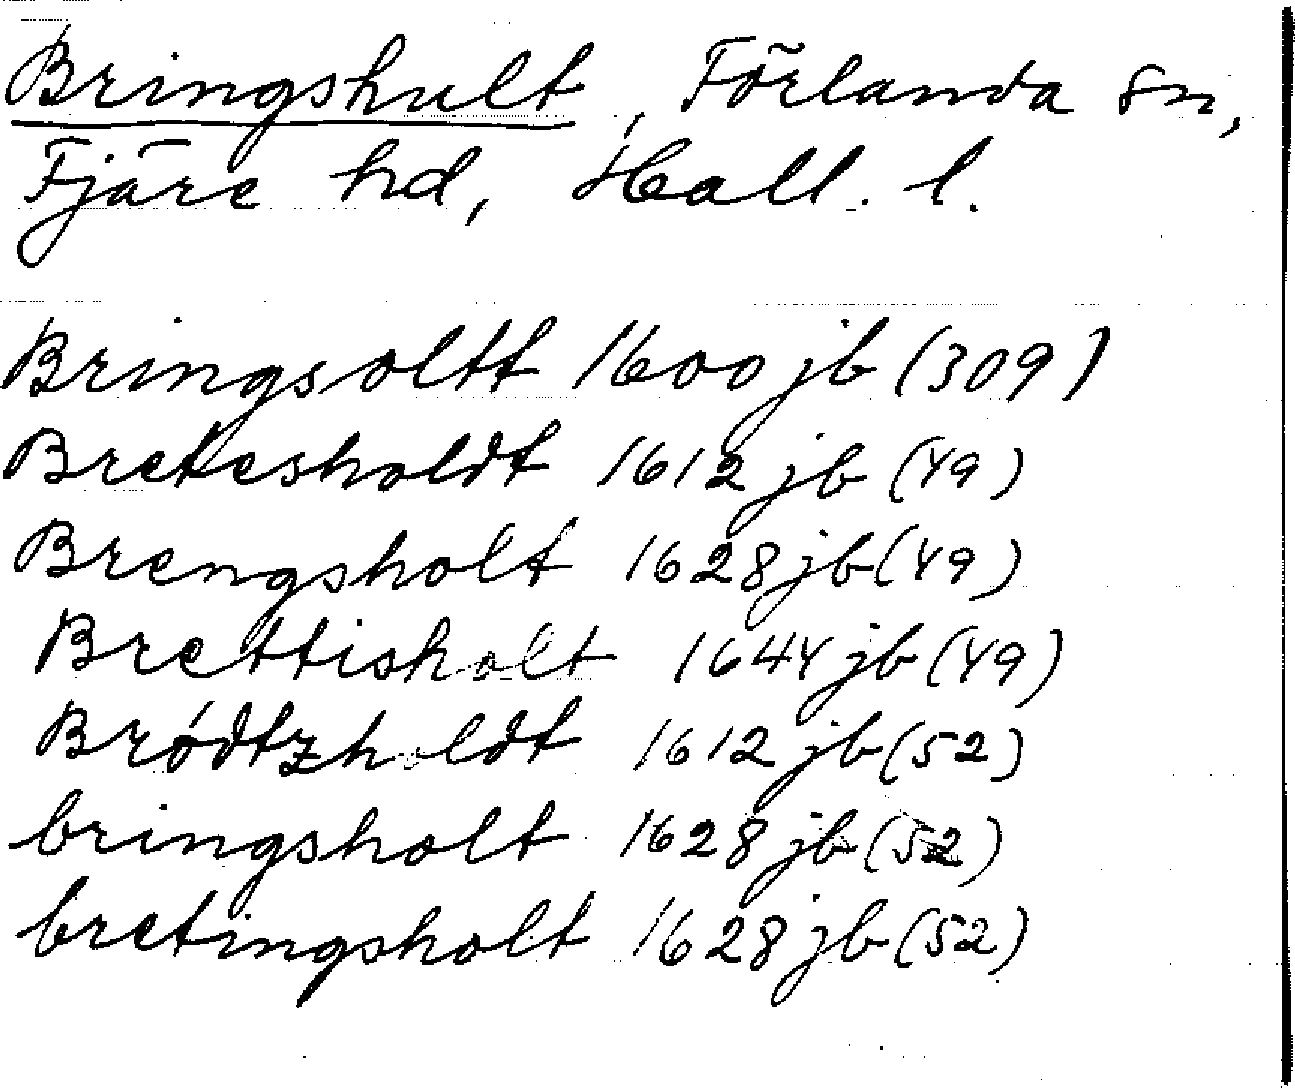 Bringshult, Förlanda sn,
Fjäre hd, Hall. l.
Bringsoltt 1600 jb (309)
Bretesholdt 1612 jb (49)
Brengsholt 1628 jb (49)
Brettisholt 1644 jb (49)
Bródtzholdt 1612 jb (52)
bringsholt 1628 jb (52)
bretingsholt 1628 jb (52)